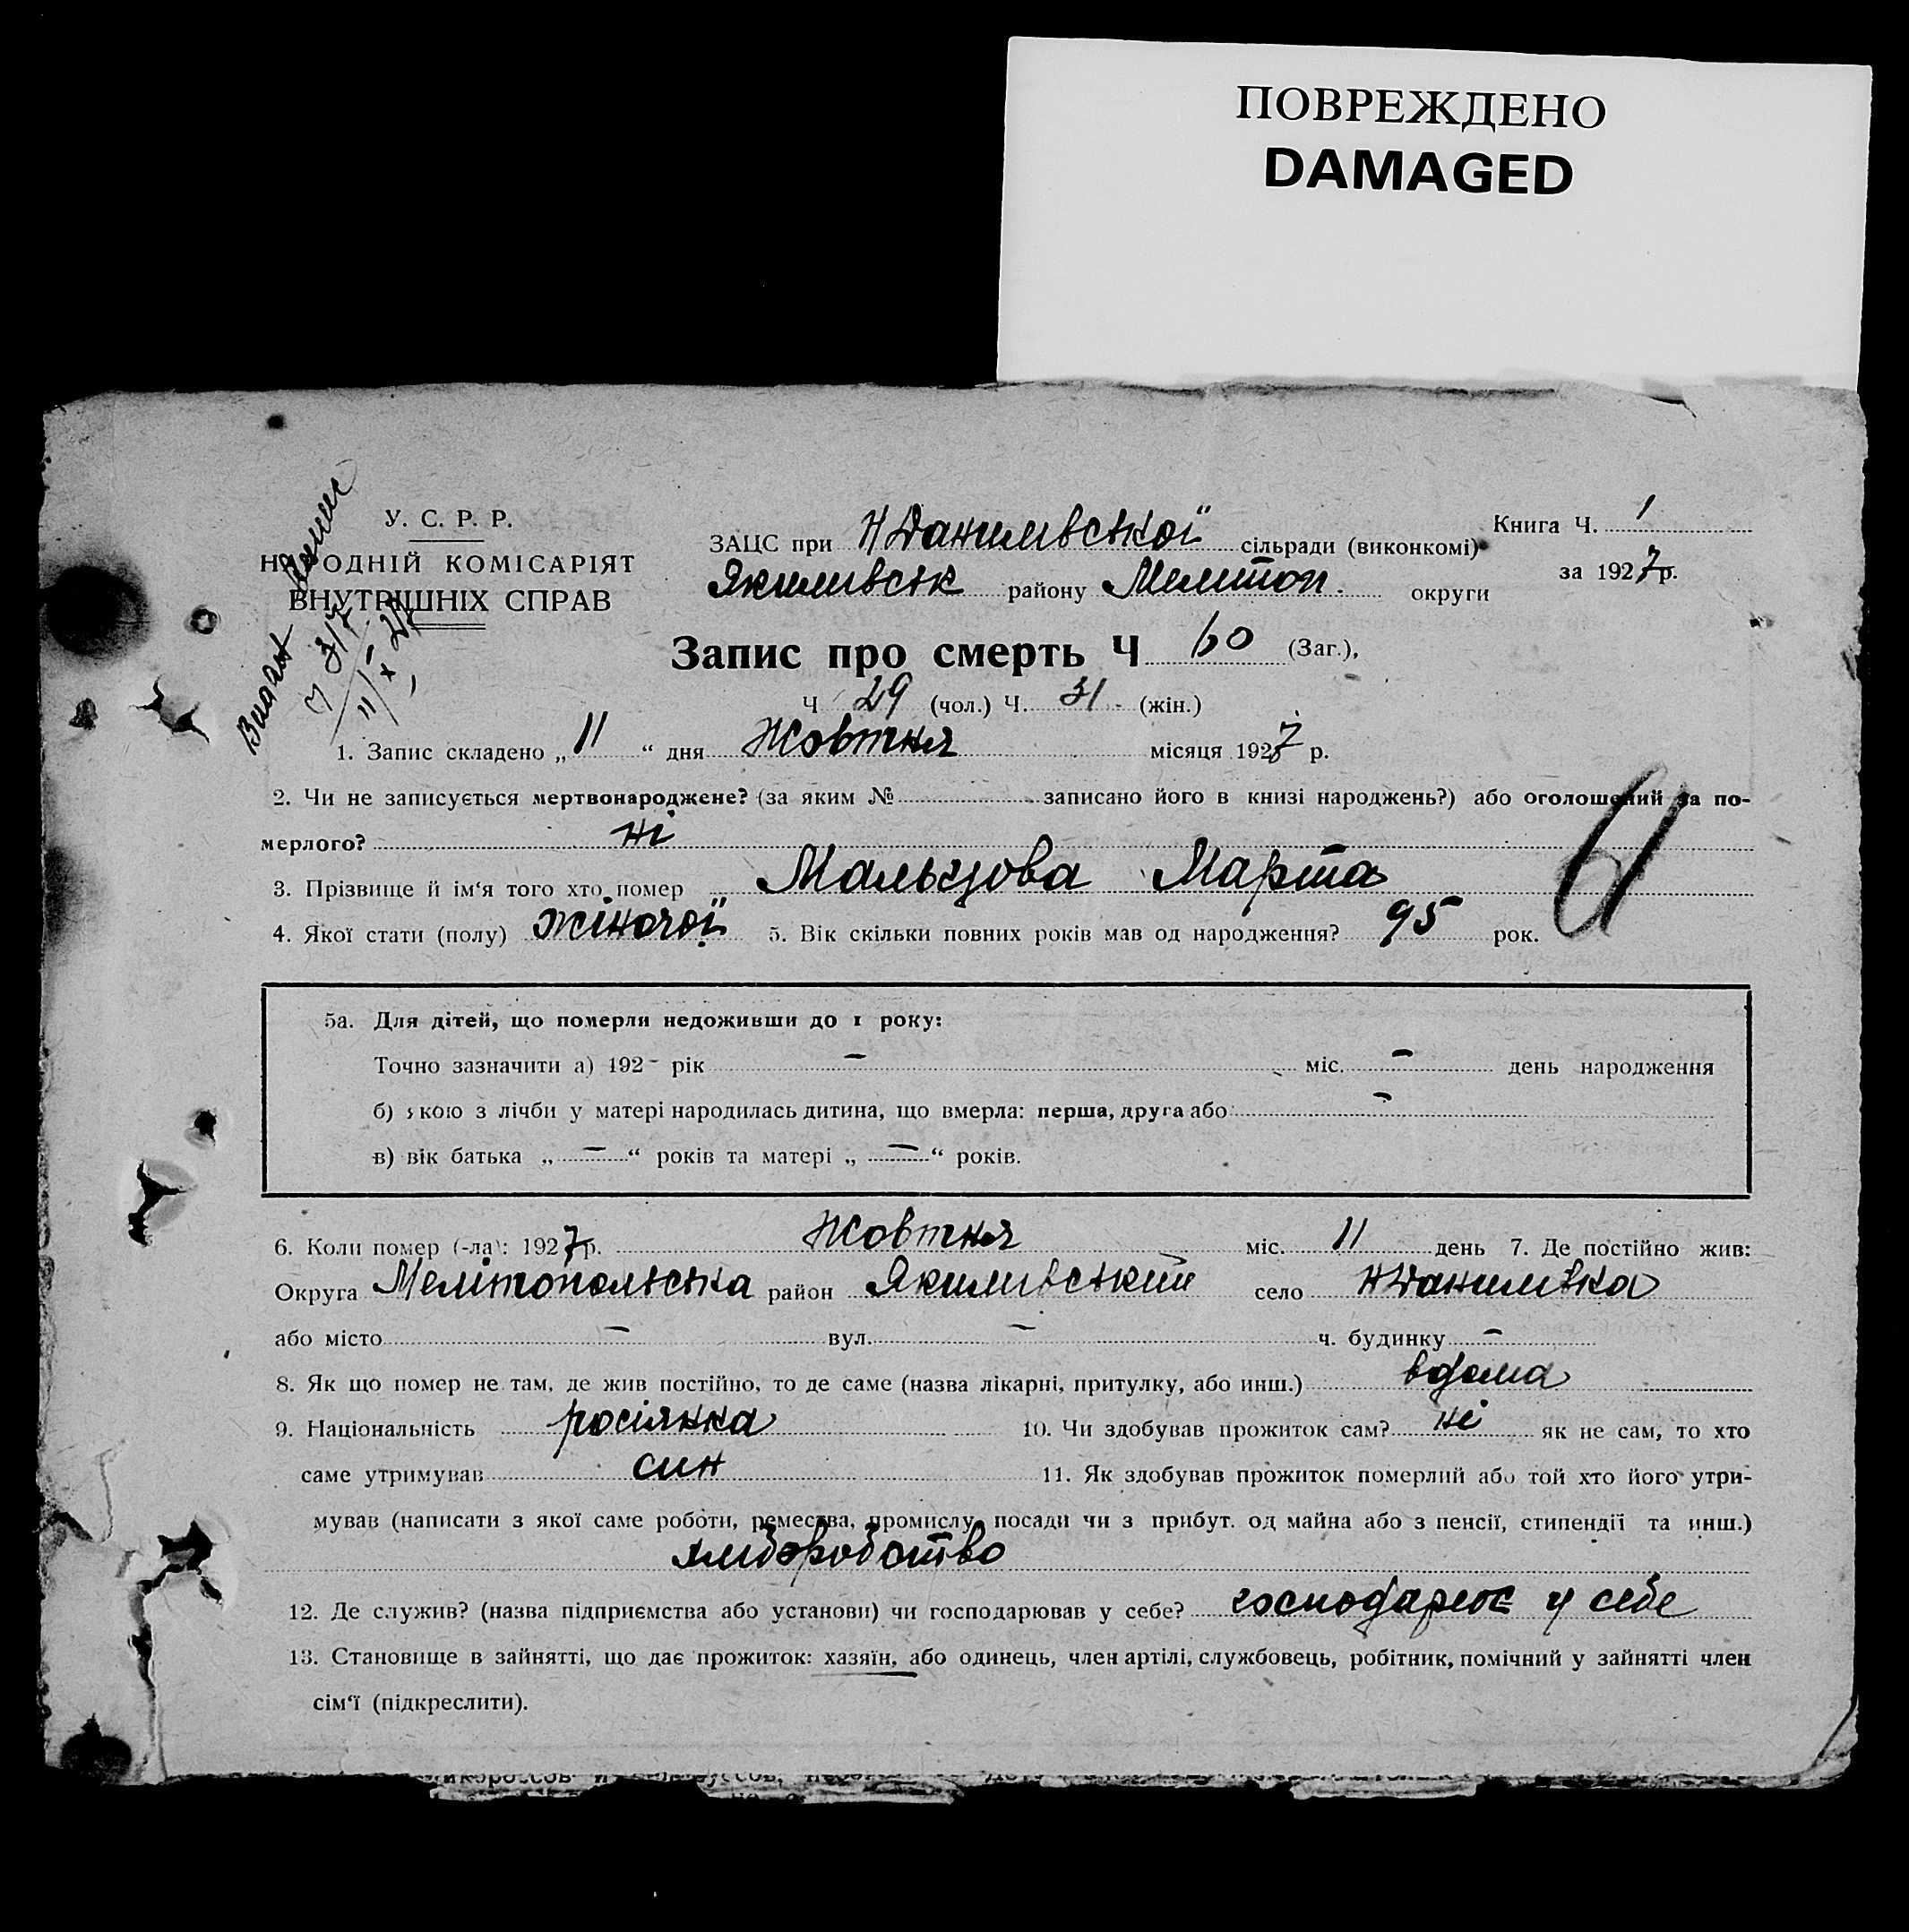 ПОВРЕЖДЕНО
DAMAGED
У. С. Р. Р.
НАРОДНІЙ КОМІСАРІЯТ
ВНУТРІШНІХ СПРАВ
ЗАЦС при НДанилівської сільради (виконкомі)
Книга Ч. 1
Якимівськ району Мелітоп. округи
за 1927 р.
Запис про смерть Ч 60 (Заг.),
Ч 29 (чол.) Ч. 31 (жін.)
1. Запис складено „ 11 “ дня Жовтня місяця 1927 р.
2. Чи не записується мертвонароджене? (за яким № записано його в книзі народжень?) або оголошений за по-
мерлого? ні
3. Прізвище й ім‘я того хто помер Мальцова Марта
4. Якої стати (полу) жіночої 5. Вік скільки повних років мав од народження? 95 рок.
5а. Для дітей, що померли недоживши до 1 року:
Точно зазначити а) 192 - рік — міс. — день народження
б) якою з лічби у матері народилась дитина, що вмерла: перша, друга або —
в) вік батька „ — “ років та матері „ — “ років.
6. Коли помер (-ла): 1927 р. Жовтня міс. 11 день 7. Де постійно жив:
Округа Мелітопольська район Якимівський село НДанилівка
або місто — вул. — ч. будинку —
8. Як що помер не там, де жив постійно, то де саме (назва лікарні, притулку, або инш.) вдома
9. Національність росіянка 10. Чи здобував прожиток сам? ні як не сам, то хто
саме утримував син 11. Як здобував прожиток померлий або той хто його утри-
мував (написати з якої саме роботи, ремества, промислу, посади чи з прибут. од майна або з пенсії, стипендії та инш.)
хліборобство
12. Де служив? (назва підприємства або установи) чи господарював у себе? господарює у себе
13. Становище в зайнятті, що дає прожиток: хазяїн, або одинець, член артілі, службовець, робітник, помічний у зайнятті член
сім‘ї (підкреслити).